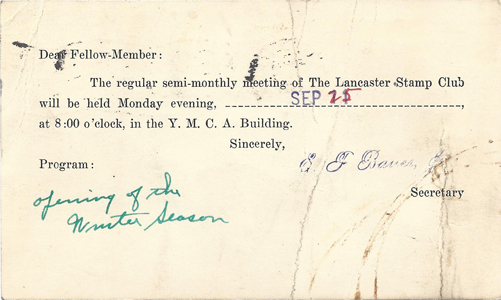 Dear Fellow-Member:
The regular semi-monthly meeting of The Lancaster Stamp Club
will be held Monday evening, SEP 25,
at 8:00 o'clock, in the Y. M. C. A. Building.
Sincerely,
Program:
E F
Secretary
opening of the
Winter Season